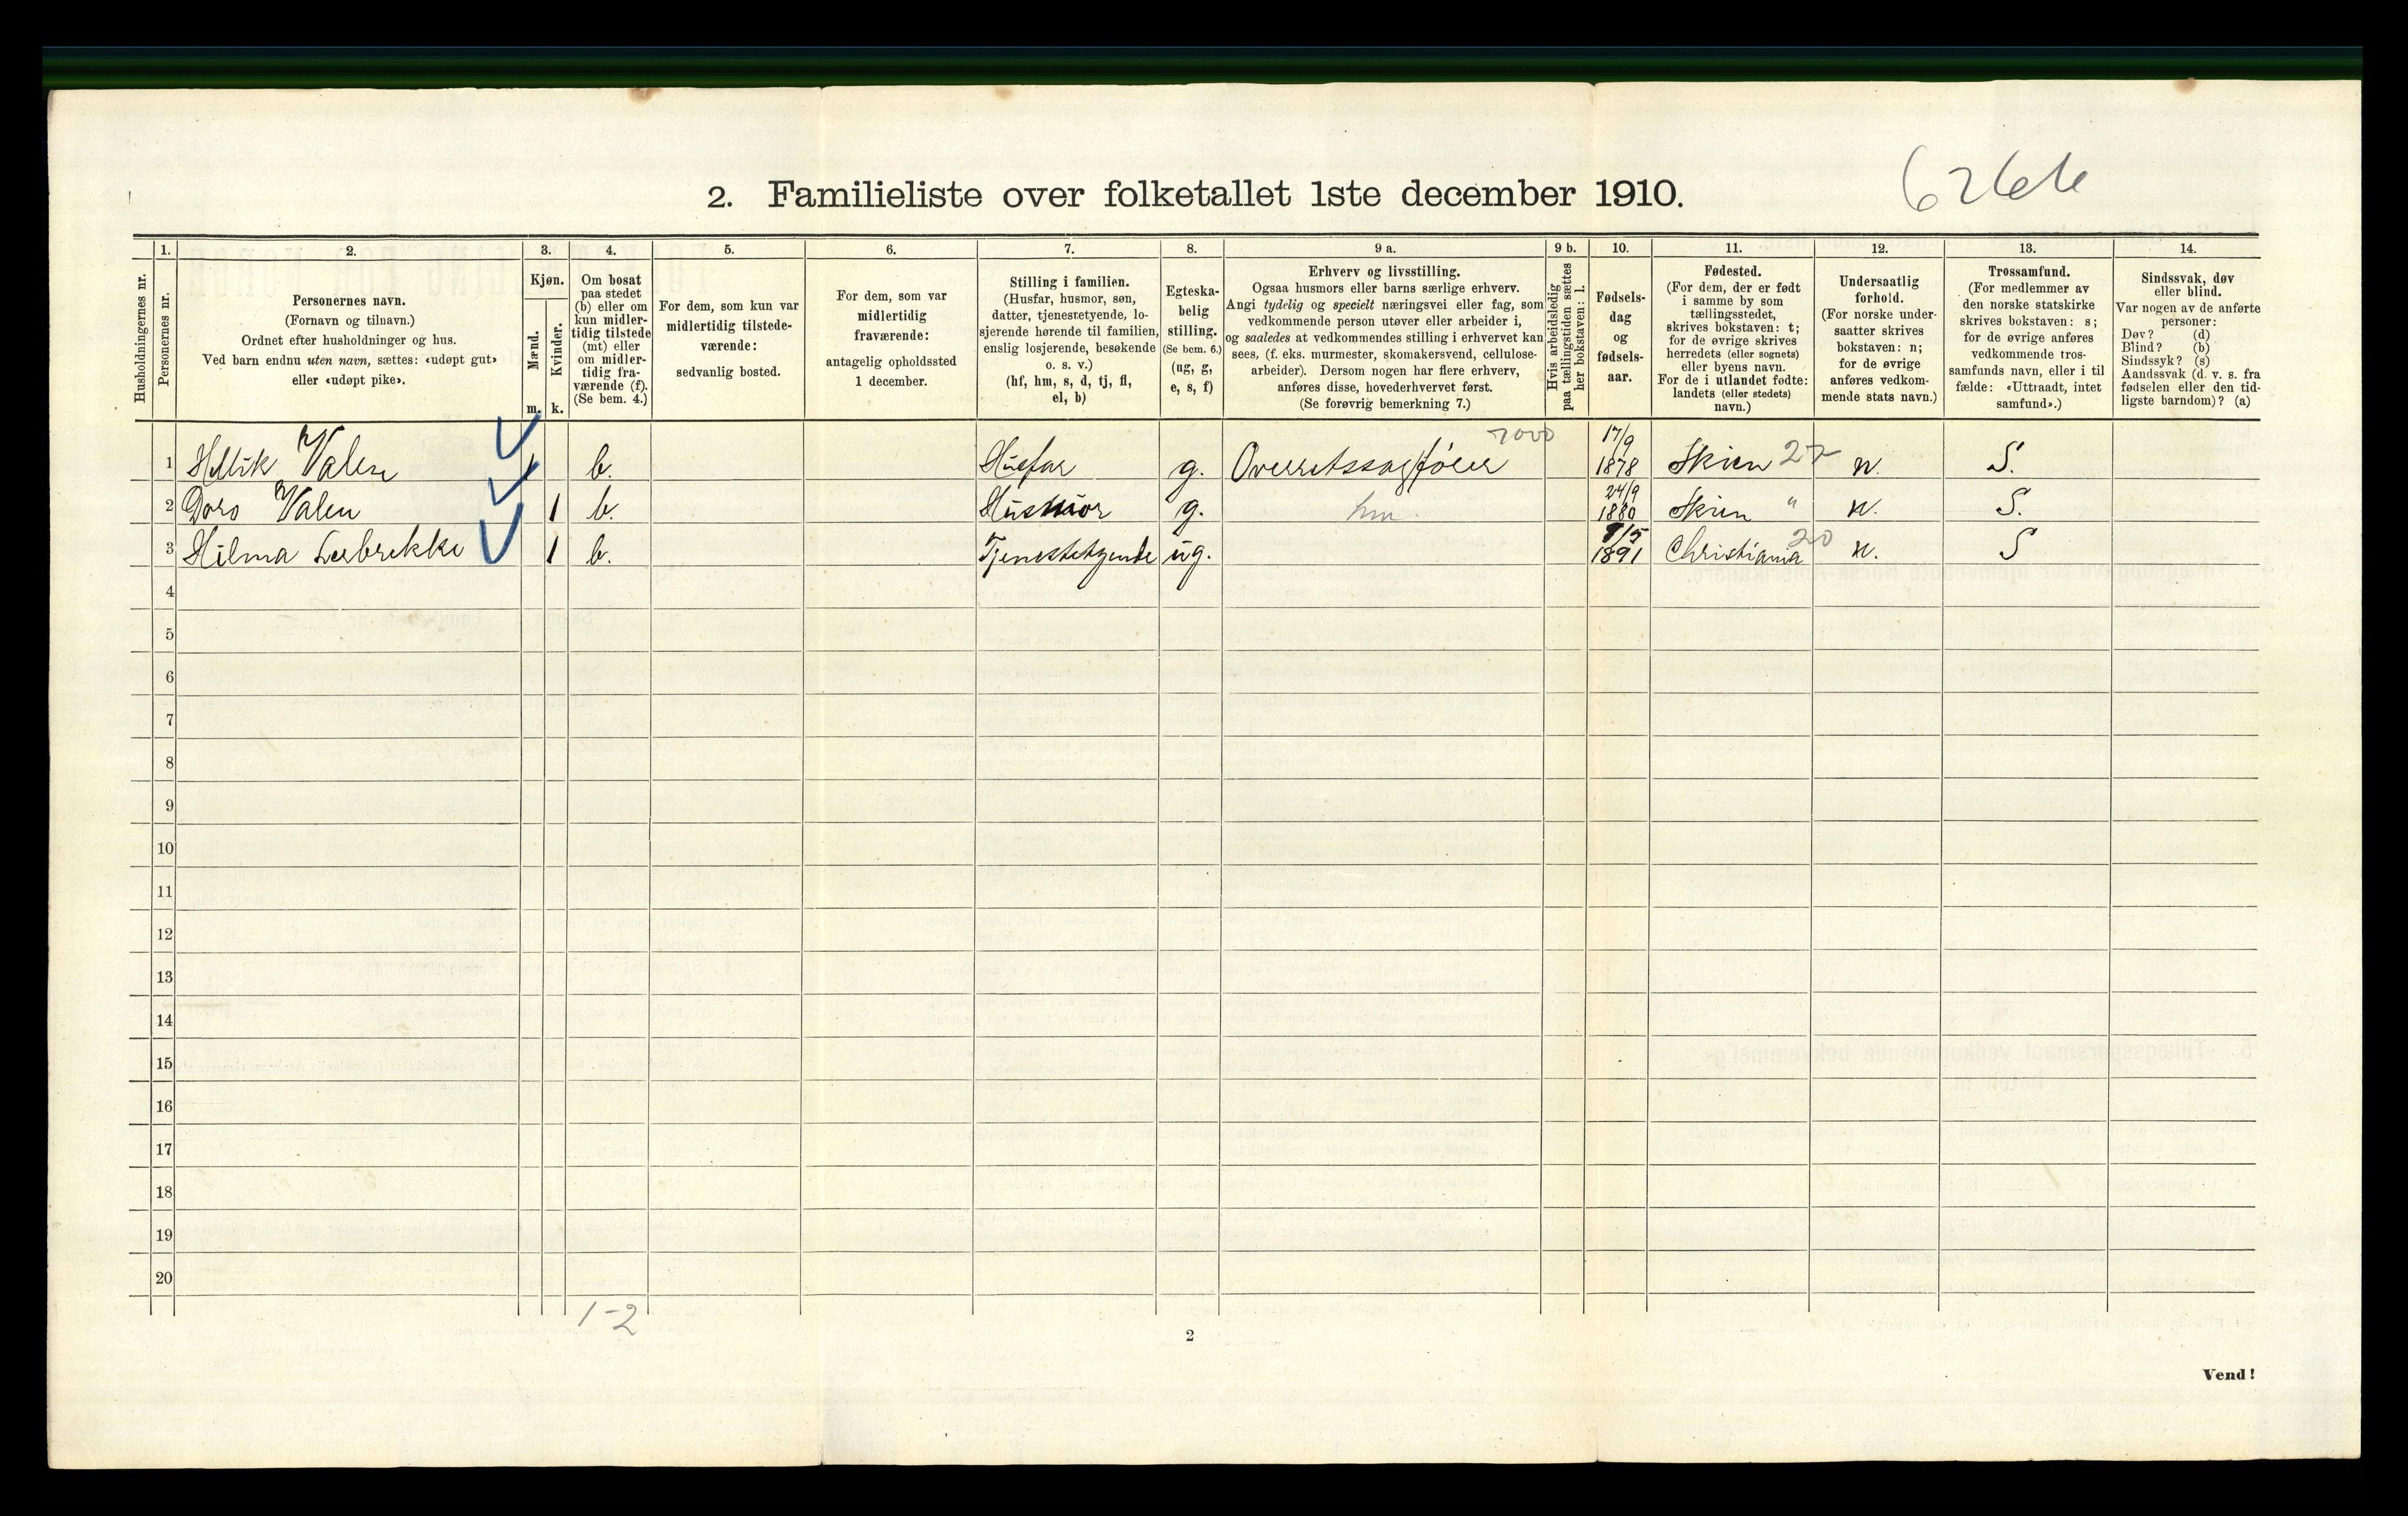 6266
2. Familieliste over folketallet 1ste december 1910.
Husholdningernes nr.
1.
Personernes nr.
2.
Personernes navn.
(Fornavn og tilnavn.)
Ordnet efter husholdninger og hus.
Ved barn endnu uten navn, sættes: «udøpt gut»
eller «udøpt pike».
3.
Kjøn.
Mænd.
Kvinder.
m. k.
4.
Om bosat
paa stedet
(b) eller om
kun midler-
tidig tilstede
(mt) eller
om midler-
tidig fra-
værende (f).
(Se bem. 4.)
5.
For dem, som kun var
midlertidig tilstede-
værende:
sedvanlig bosted.
6.
For dem, som var
midlertidig
fraværende:
antagelig opholdssted
1 december.
7.
Stilling i familien.
(Husfar, husmor, søn,
datter, tjenestetyende, lo-
sjerende hørende til familien,
enslig losjerende, besøkende
o. s. v.)
(hf, hm, s, d, tj, fl,
el, b)
8.
Egteska-
belig
stilling.
(Se bem. 6.)
(ug, g,
e, s, f)
9 a.
Erhverv og livsstilling.
Ogsaa husmors eller barns særlige erhverv.
Angi tydelig og specielt næringsvei eller fag, som
vedkommende person utøver eller arbeider i,
og saaledes at vedkommendes stilling i erhvervet kan
sees, (f. eks. murmester, skomakersvend, cellulose-
arbeider). Dersom nogen har flere erhverv,
anføres disse, hovederhvervet først.
(Se forøvrig bemerkning 7.)
9 b.
Hvis arbeidsledig
paa tællingstiden sættes
her bokstaven: l.
10.
Fødsels-
dag
og
fødsels-
aar.
11.
Fødested.
(For dem, der er født
i samme by som
tællingsstedet,
skrives bokstaven: t;
for de øvrige skrives
herredets (eller sognets)
eller byens navn.
For de i utlandet fødte:
landets (eller stedets)
navn.)
12.
Undersaatlig
forhold.
(For norske under-
saatter skrives
bokstaven: n;
for de øvrige
anføres vedkom-
mende stats navn.)
13.
Trossamfund.
(For medlemmer av
den norske statskirke
skrives bokstaven: s;
for de øvrige anføres
vedkommende tros-
samfunds navn, eller i til
fælde: «Uttraadt, intet
samfund».)
14.
Sindssvak, døv
eller blind.
Var nogen av de anførte
personer:
Døv? (d)
Blind? (b)
Sindssyk? (s)
Aandssvak (d. v. s. fra
fødselen eller den tid-
ligste barndom)? (a)
1 Valen 1 b. Husfar g. Overretssagfører 7000 17/9 1878 Skien 27 n. S.
2 Valen 1 b. Husmor g. hm 24/9 1880 Skien " n. S.
3 Hilma 1 b. Tjenestetyende ug. 1891 Christiania 20 n. S
4
5
6
7
8
9
10
11
12
13
14
15
16
17
18
19
20
1-2
2
Vend!